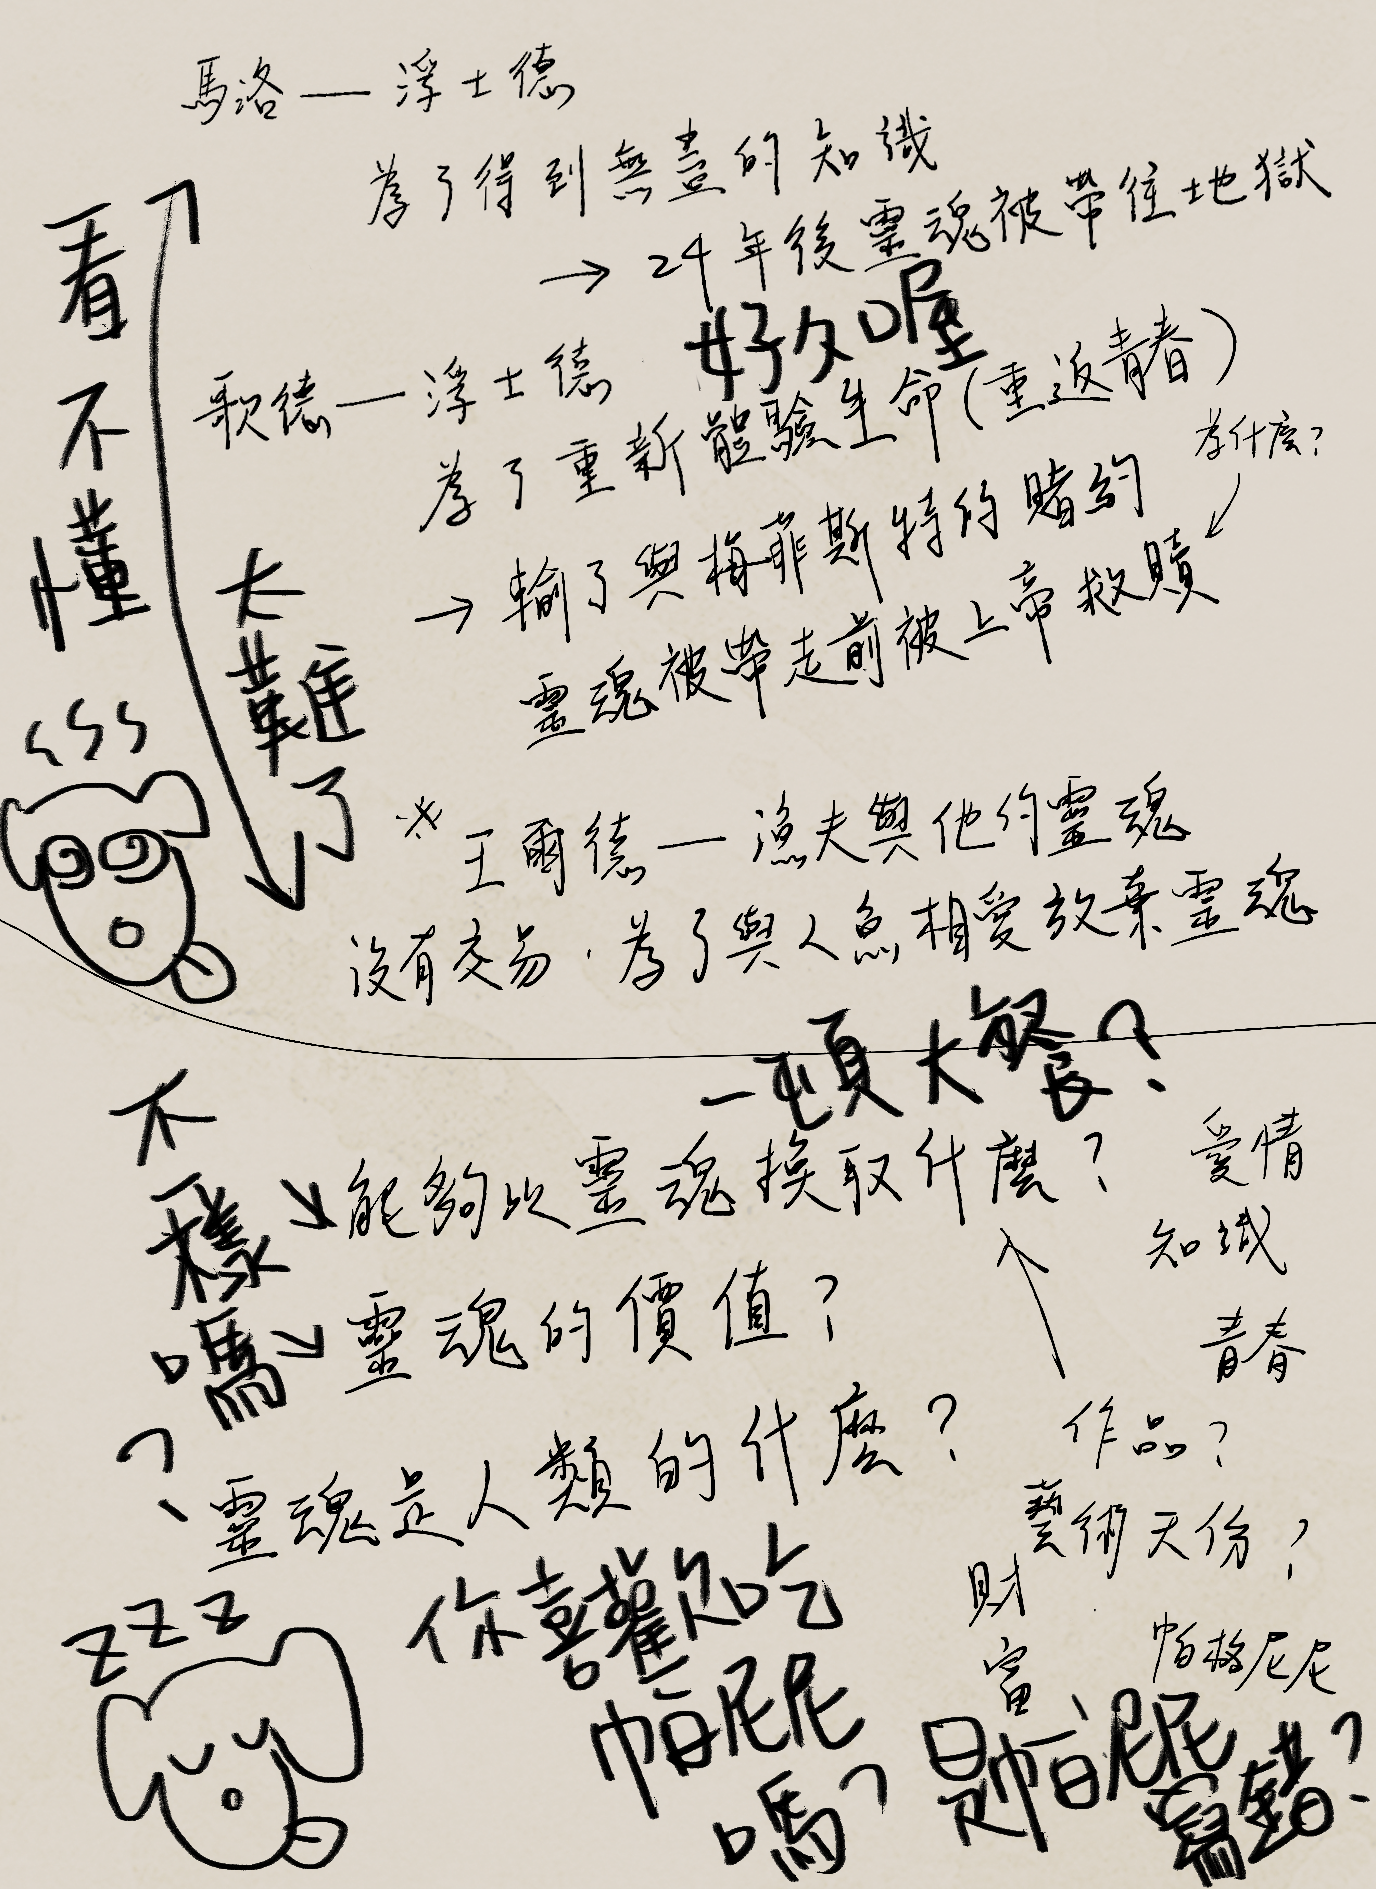 馬洛——浮士德
為了得到無盡的知識
→ 24年後靈魂被帶往地獄
好久喔
歌德——浮士德
為了重新體驗生命(重返青春)
為什麼?
→ 輸了與梅菲斯特的賭約
靈魂被帶走前被上帝救贖
看不懂
太難了
※ 王爾德——漁夫與他的靈魂
沒有交易,為了與人魚相愛放棄靈魂
一頓大餐?
不一樣嗎?
能夠以靈魂換取什麼?
靈魂的價值?
靈魂是人類的什麼?
愛情
知識
青春
作品?
藝術天份?
財富
帕格尼尼
zzz
你喜歡吃
帕尼尼
嗎?
是帕尼尼
寫錯?